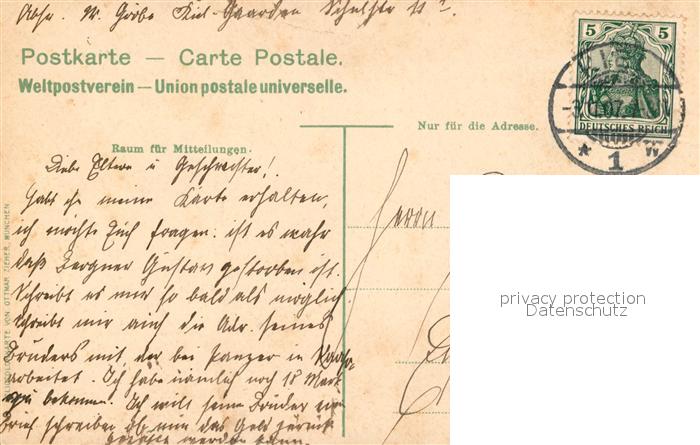 Abs. W. Gröbe Kiel-Gaarden Schulstr 11
5 5
Postkarte — Carte Postale.
Weltpostverein — Union postale universelle.
DEUTSCHES REICH
* 1 W
Nur für die Adresse.
Raum für Mitteilungen.
Liebe Eltern u Geschwister!
Habt ihr meine Karte erhalten,
ich möchte Euch fragen. ist es wahr
daß Bergner Gustav gestorben ist.
Schreibt es mir so bald als möglich
schreibt mir auch die Adr. seines
Bruders mit der bei Panzer in
arbeitet. Ich habe nämlich noch 18 Mark
zu bekommen. Ich will seinem Bruder einen
Brief schreiben ob nun das Geld zurück
werden kann.
Herrn
VON OTTMAR ZIEHER, MÜNCHEN
privacy protection
Datenschutz